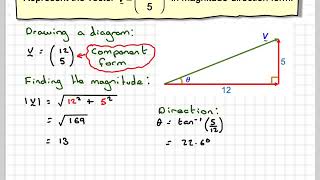 Represent the vector v = (12 5) in magnitude direction form.
Drawing a diagram:
v = (12 5) Component form
Finding the magnitude:
|v| = √12² + 5²
= √169
= 13
v
5
θ
12
Direction:
θ = tan⁻¹(5/12)
= 22.6°